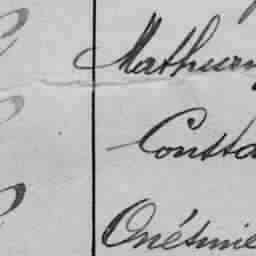 Mathurin
Consta
Onésime